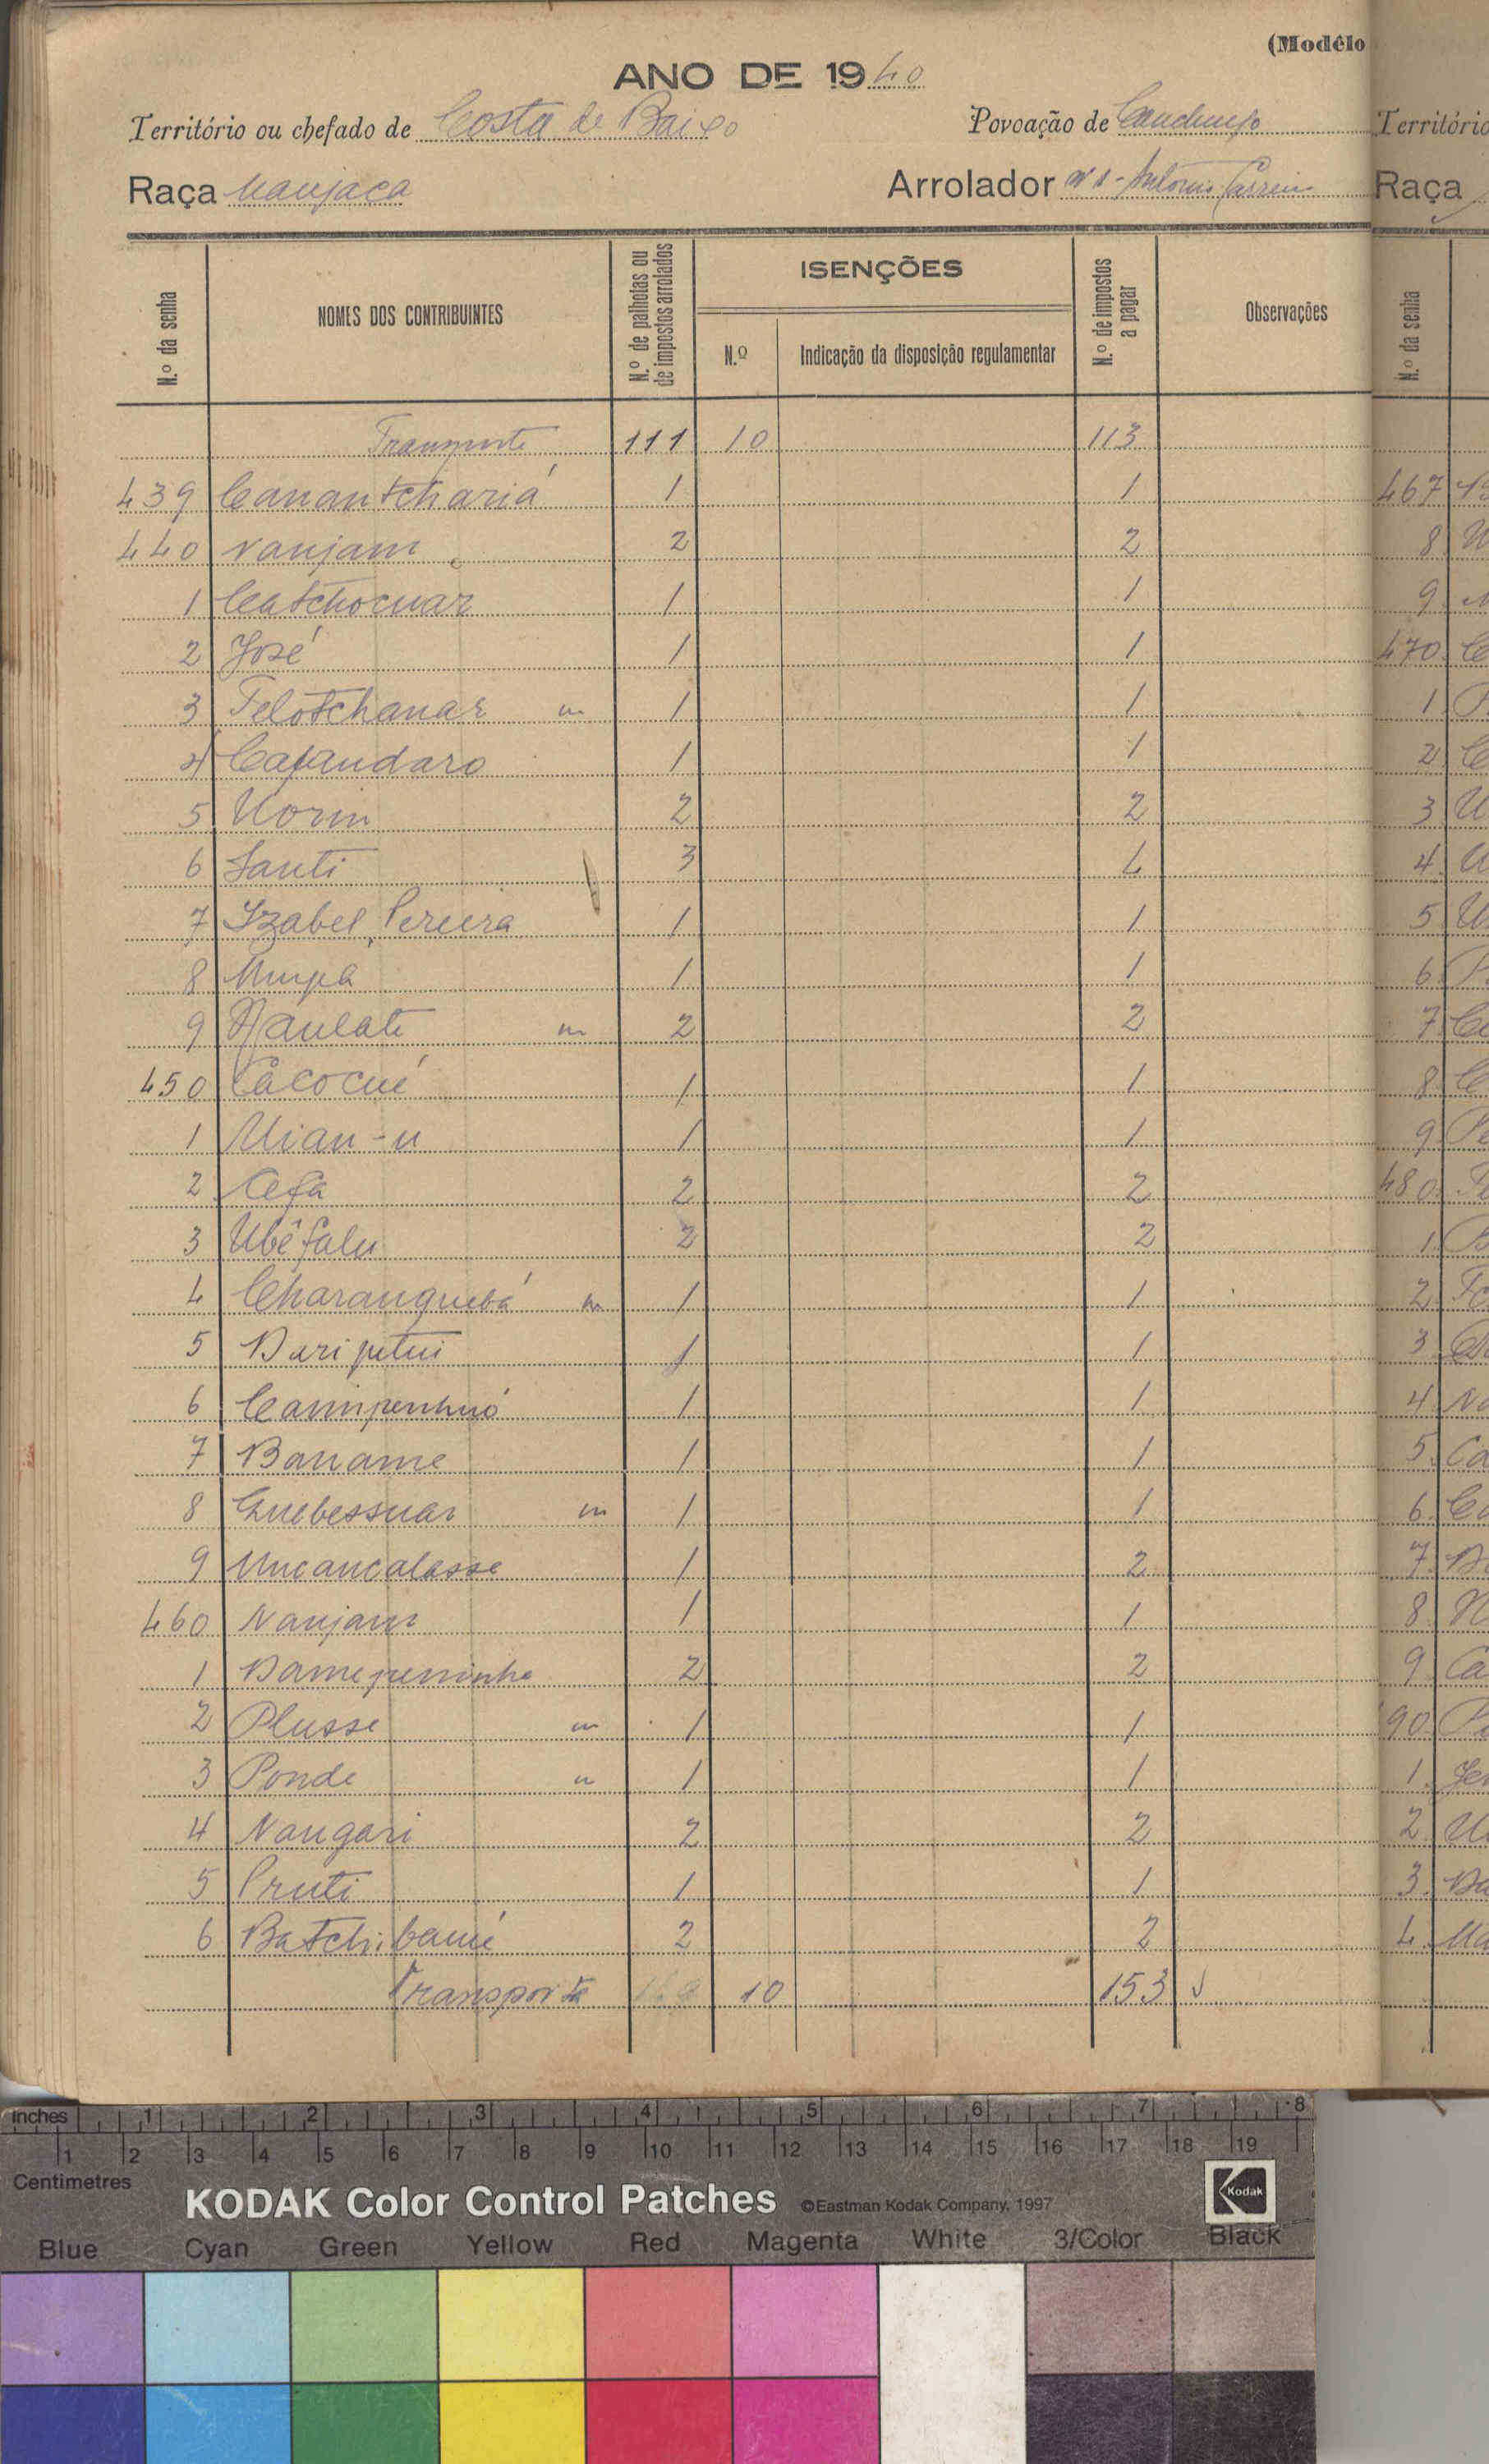 (Modêlo
ANO DE 1940
Território ou chefado de Costa de Baixo Povoação de
Raça Manjaca Arrolador nº 1 - António Carreira
N.º da senha
NOMES DOS CONTRIBUINTES
N.º de palhotas ou de impostos arrolados
ISENÇÕES
N.º
Indicação da disposição regulamentar
N.º de impostos a pagar
Observações
Transporte 111 10 113
439 Canantchariá 1 1
440 Nanjam 2 2
1 Catchocuar 1 1
2 José 1 1
3 Felotchanar m 1 1
4 Cafandaro 1 1
5 Uorin 2 2
6 Santi 3 4
7 Izabel Pereira 1 1
8 1 1
9 Naulate m 2 2
450 Cacocué 1 1
1 Uian-u 1 1
2 Cefa 2 2
3 Ubêfalu 2 2
4 Charanguebá m 1 1
5 1 1
6 1 1
7 Baname 1 1
8 Quebessuar m 1 1
9 Uncancalasse 1 2
460 Nanjam 1 1
1 2 2
2 Plusse m 1 1
3 Ponde m 1 1
4 Nangari 2 2
5 Pruti 1 1
6 Batchibamé 2 2
Transporte 10 153
Território
Raça
N.º da senha
467
8
9
470
1
2
3
4
5
6
7
8
9
480
1
2
3
4
5
6
7
8
9
90
1
2
3
4
inches 1 2 3 4 5 6 7 8
1 2 3 4 5 6 7 8 9 10 11 12 13 14 15 16 17 18 19
Centimetres
KODAK Color Control Patches ©Eastman Kodak Company, 1997 Kodak
Blue Cyan Green Yellow Red Magenta White 3/Color Black